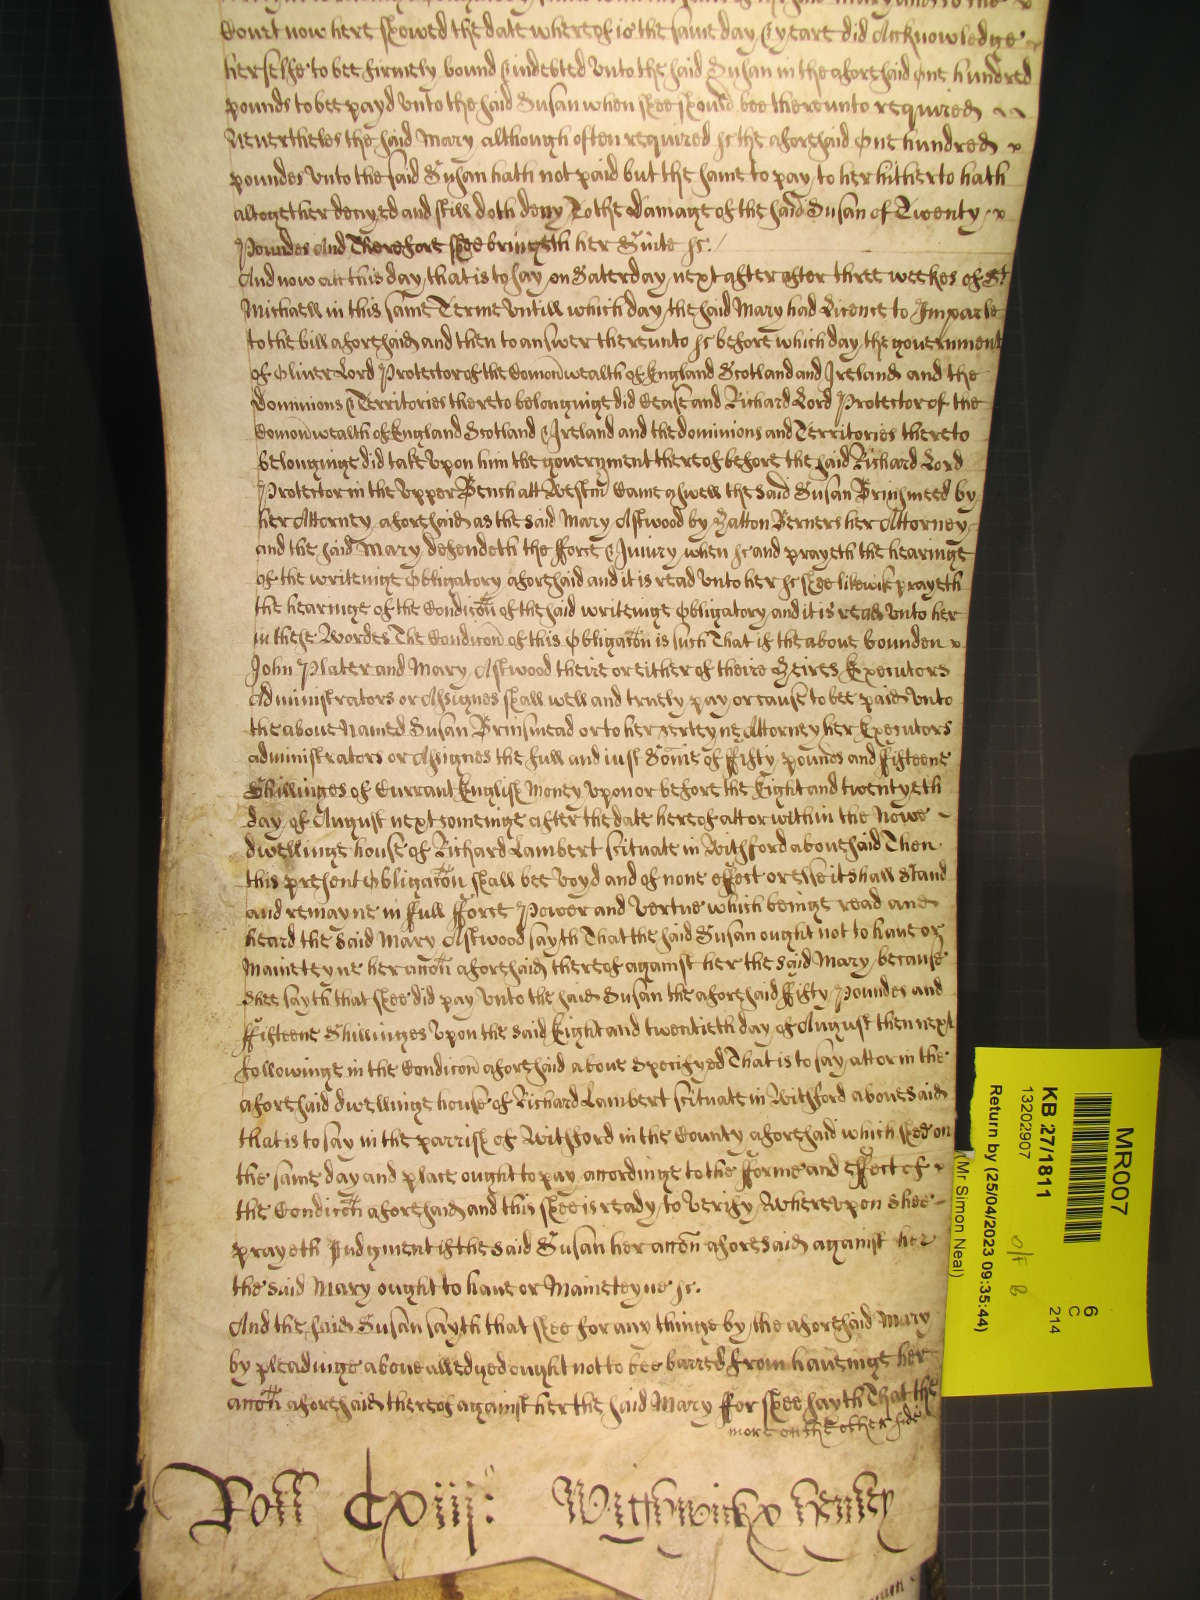 Court now here shewed the date whereof is the same day & yeare did Acknowledge
herselfe to bee firmely bound & indebted unto the said Susan in the aforesaid One hundred
pounds to bee payd unto the said Susan when shee should bee thereunto required
Nevertheles the said Mary although often required &c the aforesaid One hundred
poundes unto the said Susan hath not paid but the same to pay to her hitherto hath
altogether denyed and still doth deny To the Damage of the said Susan of Twenty
Poundes And Therefore shee bringeth her Suite &c.
And now att this day that is to say on Saterday next after after three weekes of St
Michaell in this same Terme untill which day the said Mary had Licence to Imparle
to the bill aforesaid and then to answer thereunto &c before which day the government
of Oliver Lord Protector of the Comonwealth of England Scotland and Ireland and the
Dominions & Territories thereto belonginge did Cease and Richard Lord Protector of the
Comonwealth of England Scotland & Ireland and the dominions and Territories thereto
belonginge did take upon him the government thereof before the said Richard Lord
Protector in the Upper Bench att Westm Came aswell the said Susan Brinsmeed by
her Attorney aforesaid as the said Mary Astwood by Hatton Berners her Attorney
and the said Mary defendeth the fforce & Iniury when &c and prayeth the hearinge
of the writeinge Obligatory aforesaid and it is read unto her &c shee likewise prayeth
the hearinge of the Condicon of the said writeinge Obligatory and it is read unto her
in these Wordes The Condicon of this Obligacon is such That if the above bounden
John Plater and Mary Astwood theire or either of theire Heires Executors
Administrators or Assignes shall well and truely pay or cause to bee paid unto
the above Named Susan Brinsmead or to her certeyne Attorney her Executors
administrators or Assignes the full and iust Some of ffifty pounds and ffifteene
Shillinges of Currant English Money upon or before the Eight and twentyeth
day of August next comeinge after the date hereof att or within the Nowe
dwellinge house of Richard Lambert scituate in Withford abovesaid Then
this present Obligacon shall bee voyd and of none effect or else it shall stand
and remayne in full fforce Power and vertue which beinge read and
heard the said Mary Astwood sayth That the said Susan ought not to have or
Mainteyne her accon aforesaid thereof against her the said Mary because
Shee sayth that shee did pay unto the said Susan the aforesaid ffifty Poundes and
ffifteene Shillinges upon the said Eight and twentieth day of August then next
followinge in the Condicon aforesaid above Specifyed That is to say att or in the
aforesaid dwellinge house of Richard Lambert scituate in Withford abovesaid
that is to say in the parrish of Withford in the County aforesaid which shee on
the same day and place ought to pay accordinge to the fforme and effect of
the Condicon aforesaid and this shee is ready to verify Whereupon shee
prayeth Iudgment if the said Susan her accon aforesaid against her
the said Mary ought to have or Mainteyne &c.
And the said Susan sayth that shee for any thinge by the aforesaid Mary
by pleadinge above alledged ought not to bee barred from haveinge her
accon aforesaid thereof against her the said Mary ffor shee sayth That the
more on the other side
Roll Cxiij:
MR007
KB 27/1811
13202907
6
C
214
O/F B
Return by (25/04/2023 09:35:44)
(Mr Simon Neal)